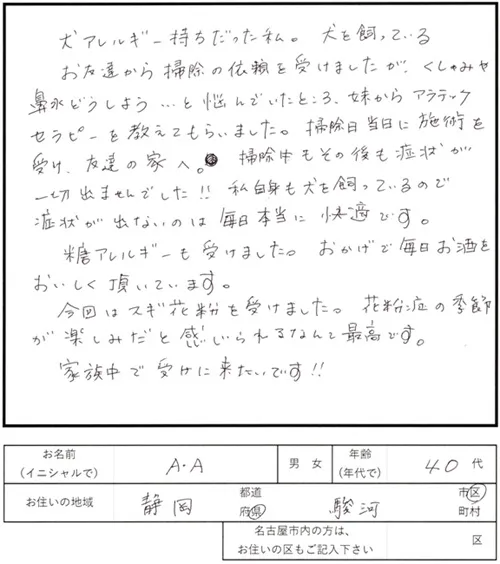 犬アレルギー持ちだった私。犬を飼っている
お友達から掃除の依頼を受けましたが、くしゃみや
鼻水どうしよう…と悩んでいたところ、妹からアラテック
セラピーを教えてもらいました。掃除日当日に施術を
受け、友達の家へ。掃除中もその後も症状が
一切出ませんでした!! 私自身も犬を飼っているので
症状が出ないのは毎日本当に快適です。
糖アレルギーも受けました。おかげで毎日お酒を
おいしく頂いています。
今回はスギ花粉を受けました。花粉症の季節
が楽しみだと感じられるなんて最高です。
家族中で受けに来たいです!!
お名前
(イニシャルで)
A・A
男 女
年齢
(年代で)
40代
お住いの地域
静岡
都道
府県
駿河
市区
町村
名古屋市内の方は、
お住いの区もご記入下さい
区